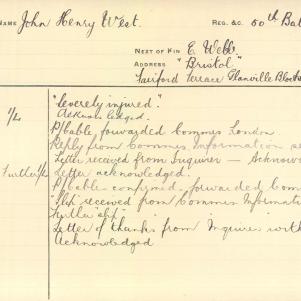 NAME John Henry West. REG. &C. 50th Bat
NEXT OF KIN E. Webb.
ADDRESS "Bristol"
Fairford Terrace Glanville Blocks
"Severely injured".
1/4 Acknowledged.
P/Cable forwarded Commrs London.
Reply from Commrs Information se
Letter received from Inquirer — Acknow
Further Letter acknowledged.
P/Cable confirmed, forwarded Com
received from Commrs Informati
Further slip
Letter of thanks from Inquirer with
Acknowledged